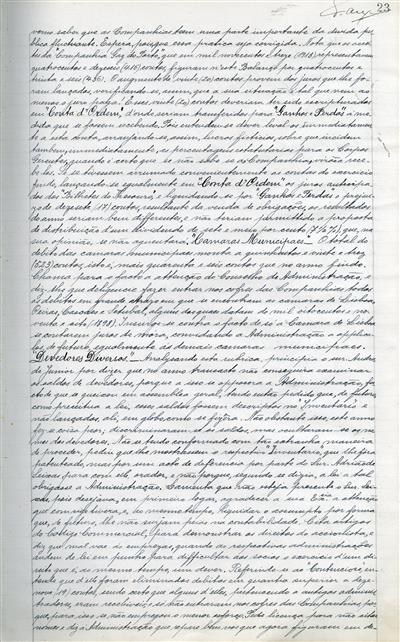 23
verno saber que as Companhias teem uma parte importante da divida pu-
blica fluctuante. Espera, pois, que essa pratica seja corrigida. Nota que a con-
ta da "Companhia Gaz do Porto", que em mil novecentos e treze (1913) representava
quatrocentos e dezeseis (416) contos, figura n'este Balanço por quatrocentos e
trinta e seis (436). O augmento de vinte (20) contos provem dos juros que lhe fo-
ram lançados, verificando-se, assim, que a sua situação é tal que nem ao
menos o juro paga. Esses vinte (20) contos deveriam ter sido escripturados
em "Conta d'Ordem", d'onde seriam transferidos para "Ganhos e Perdas" á me-
dida que se fossem recebendo. Foi entender-se
a esta conta, creando-se, assim, lucros ficticios, sobre que incidem
tambem immediatamente, as percentagens estatutarias para os Corpos
Gerentes, quando é certo que se não sabe se as Companhias virão a rece-
be-los. Se se tivessem arrumado convenientemente as contas do exercicio
findo, lançando-se egualmente em "Conta d'Ordem" os juros antecipa-
dos dos Bilhetes do Thesouro, e liquidando-se por Ganhos e Perdas o prejui-
zo de dezesete (17) contos, resultante da venda de obrigações, os resultados
do anno seriam bem differentes, e não teriam permittido a proposta
de distribuição d'um dividendo de sete e meio por cento (7 ½ %), que, na
sua opinião, se não aguentará. "Camaras Municipaes" - O total do
debito das camaras municipaes, monta a quinhentos e vinte e tres
(523) contos, isto é, mais quarenta e seis contos que no anno findo.
Chama para o facto a attenção do Conselho de Administração, e
diz-lhe que diligenceie fazer entrar nos cofres das Companhias todos
os debitos em grande atrazo em que se encontram as camaras de Lisboa,
Oeiras, Cascaes e Setubal, alguns dos quaes datam de mil oitocentos e no-
venta e oito (1898). Insurge-se contra o facto de só á Camara de Lisboa
se contarem juros de móra, convidando a Administração a applical-
os, de futuro, egualmente ás demais camaras municipaes.
"Devedores Diversos" - Analysando esta rubrica, principia o snr. André
de Junior por dizer que no anno transacto não conseguira examinar
os saldos de devedores, porque a isso se oppozera a Administração, fa-
cto de que se queixou em assembléa geral, tendo então pedido que, de futuro,
como preceitua a lei, esses saldos fossem descriptos no "Inventario" e
não lançados, ali, em globo, como se fizera. Não obstante isso, este anno
fez-se ainda peor: discriminaram-se os saldos, mas occultaram-se os no-
mes dos devedores. Não se tendo conformado com tão estranha maneira
de proceder, pediu que lhe mostrassem o respectivo "Inventario", que lhe fôra
patenteado, mais por um acto de deferencia por parte do snr. Adriano
Seixas para com elle, orador, e não porque, segundo se dizia, a lei a tal
obrigasse a Administração. Lamenta que não esteja presente o snr. Sei-
xas, pois desejava, em primeiro logar, agradecer a sua Exª a attenção
que com elle tivera, e, ao mesmo tempo, liquidar o assumpto por forma
que, de futuro, lhe não surjam peias na contabilidade. Cita artigos
do Codigo Commercial, para demonstrar os direitos do accionista, e
diz que mal vae ás emprezas, quando as respectivas administrações
saltam da lei um pontinho para difficultar aos socios o exercicio d'um di-
reito que é, ao mesmo tempo, um dever. Referindo-se ao "Contencioso", en-
tende que d'elle foram eliminados debitos em quantia superior a deze-
nove (19) contos, sendo certo que alguns d'elles, pertencendo a antigos adminis-
tradores, eram recebiveis, e só não entraram nos cofres das Companhias por-
que, para isso, se não empregou o menor esforço. Pede licença para não citar
nomes e diz á Administração que repare bem nos que agora figuram em de-